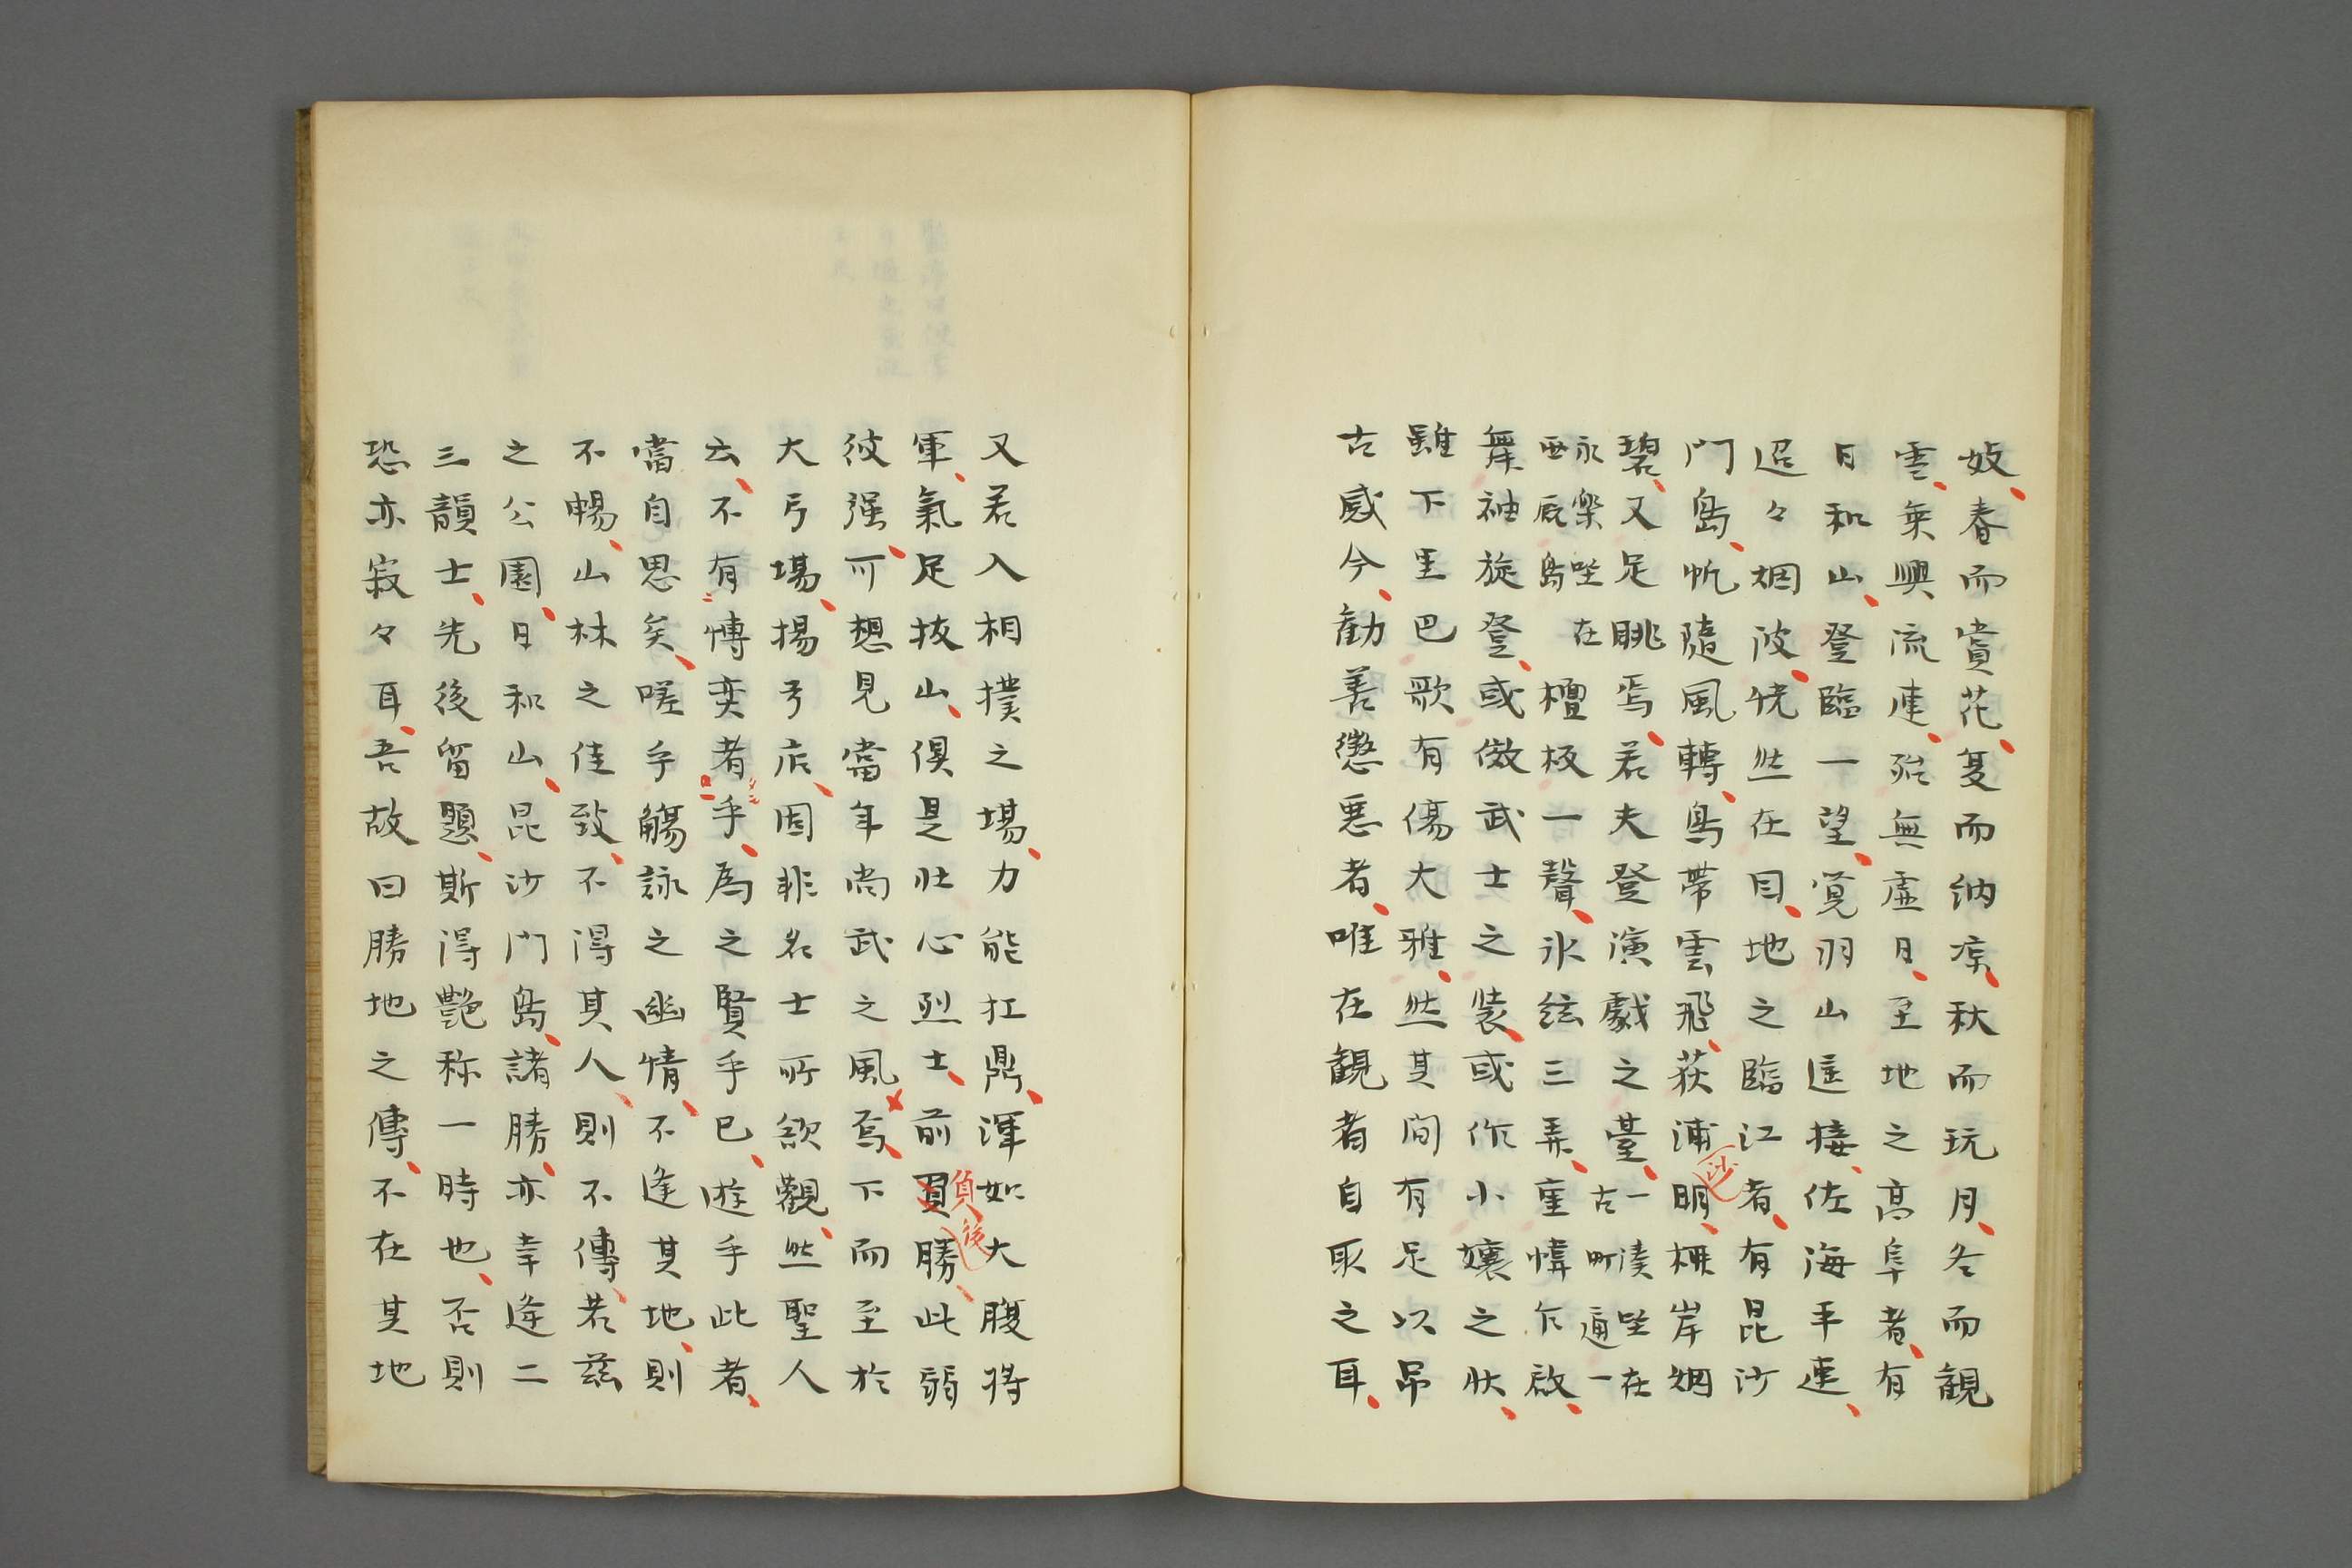 妓春而賞花夏而納凉秋而玩月冬而観
雪乗興流連殆無虚日至地之高阜者有
日和山登臨一望覚羽山遥接佐海平連
迢々烟波恍然在目地之臨江者有毘沙
門島帆随風轉鳥帯雲飛荻浦明沙柳岸烟
碧又足眺焉若夫登演戯之臺一湊坐在
古町通一
永楽坐在
西厩島檀板一聲氷絃三弄重幃乍啟
舞袖旋登或倣武士之装或作小孃之状
雖下里巴歌有傷大雅然其间有足以吊
古感今勧善懲悪者唯在観者自取之耳
又若入相撲之場力能扛鼎渾如大腹将
軍氣足抜山俱是壮心烈士前負後勝此弱
彼强可想見當年尚武之風焉下而至於
大弓場揚弓店固非名士所欲觀然聖人
云不有博奕者乎為之賢乎已遊乎此者
當自思矣嗟乎觴詠之幽情不逢其地則
不暢山林之佳致不得其人則不傳若茲
之公園日和山毘沙門島諸勝亦幸逢二
三韻士先後留題斯得艶称一時也否則
恐亦寂々耳吾故曰勝地之傳不在其地